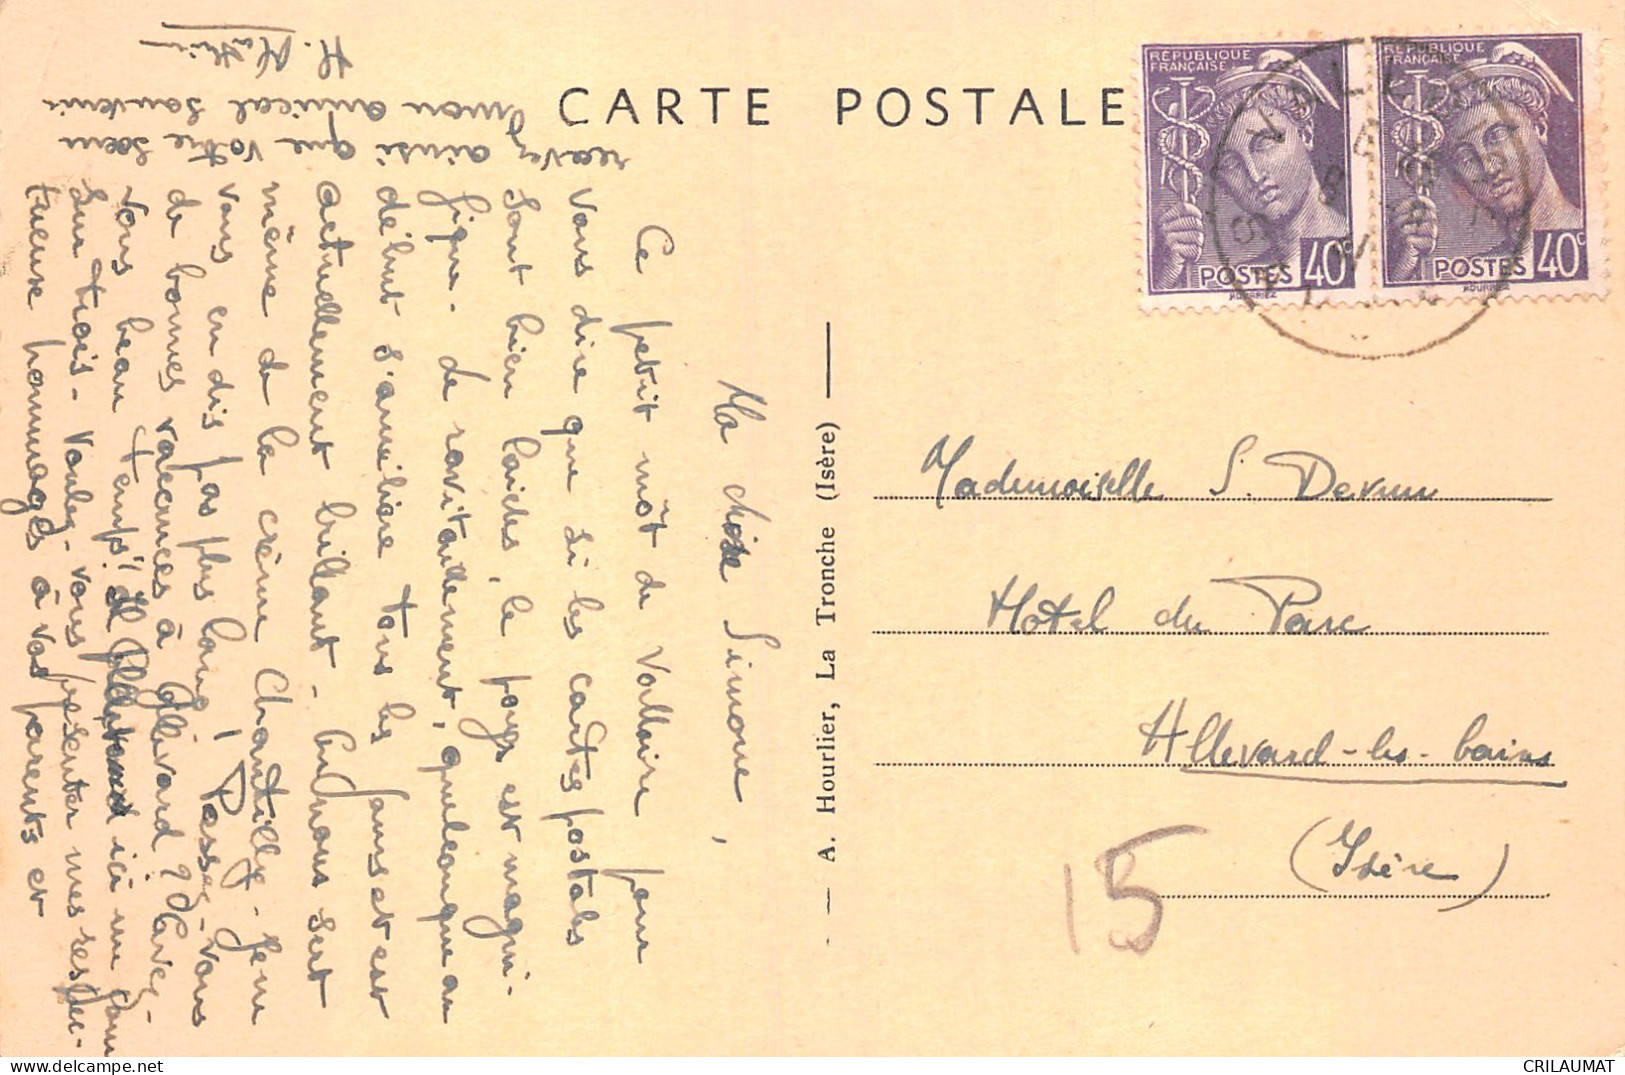 CARTE POSTALE
RÉPUBLIQUE
FRANÇAISE
POSTES 40c
HOURRIEZ
RÉPUBLIQUE
FRANÇAISE
POSTES 40c
HOURRIEZ
Ma chère Simone,
Ce petit môt de Valloire pour
vous dire que si les cartes postales
sont bien laides, le pays est magni-
fique. de ravitaillement, quelconque au
début s'améliore tous les jours et est
actuellement brillant. on nous sert
même de la crème Chantilly. Je ne
vous en dis pas plus long ! Passez-vous
de bonnes vacances à Allevard ? Avez-
vous beau temps ? Il pleut ici un jour
sur trois. Voulez-vous présenter mes respec-
tueux hommages à vos parents et
recevez ainsi que votre sœur
mon amical souvenir
A. Hourlier, La Tronche (Isère)
Mademoiselle S.
Hotel du Parc
Allevard-les-bains
(Isère)
15
CRILAUMAT